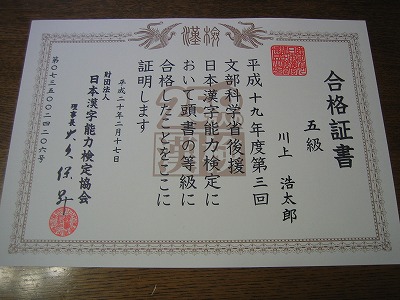 漢検
合格証書
五級
川上 浩太郎
平成十九年度第三回
文部科学省後援
日本漢字能力検定に
おいて頭書の等級に
合格したことをここに
証明します
平成二十年二月十七日
財団法人
日本漢字能力検定協会
理事長 大久保昇
第〇七三五〇〇二四二〇六号